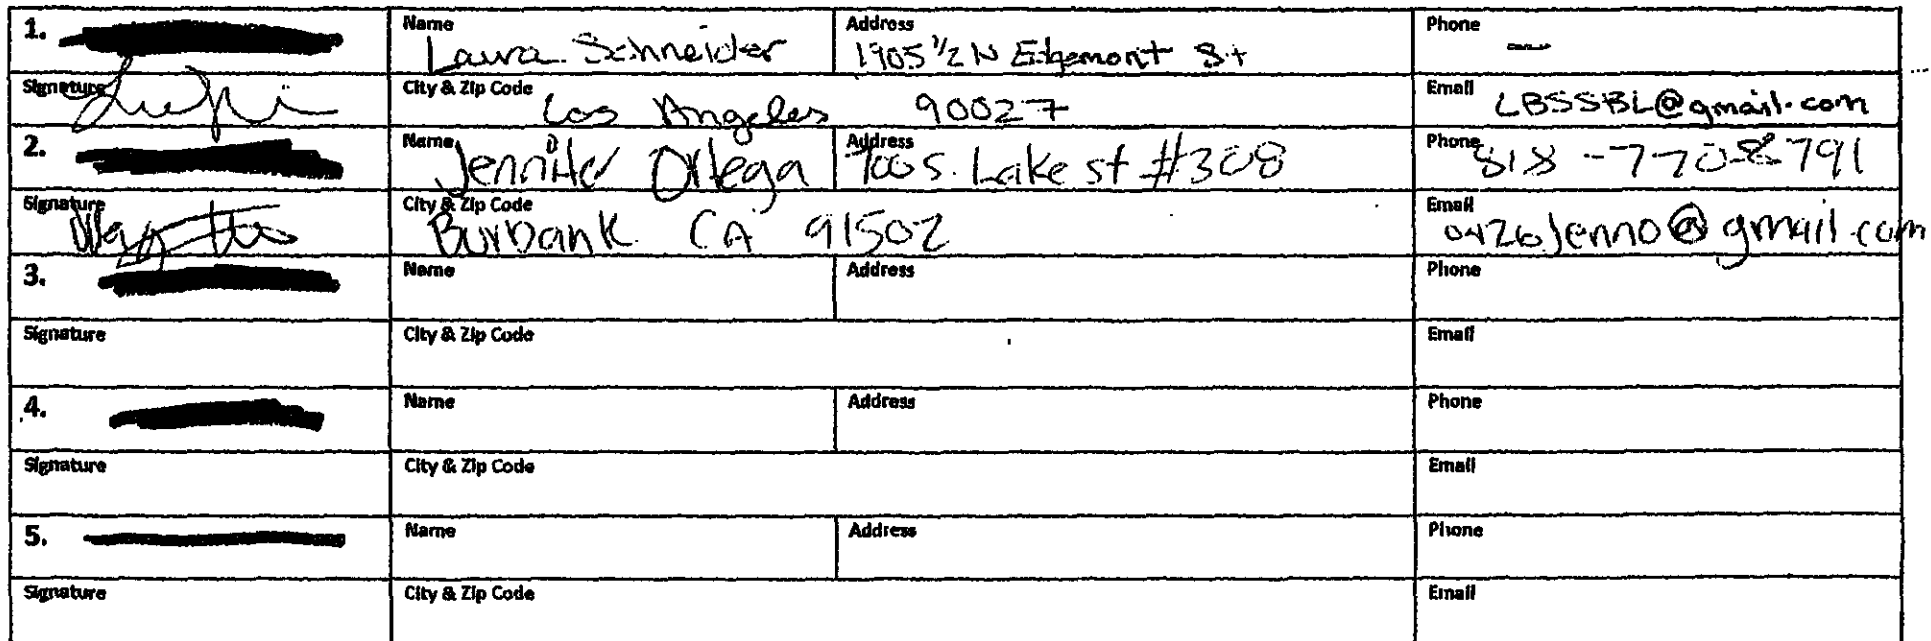 1. Name Address Phone
Laura Schneider 1905 1/2 N Edgemont St —
Signature City & Zip Code Email
Los Angeles 90027 LBSSBL@gmail.com
2. Name Address Phone
Jennifer Ortega 700 S. Lake st #308 818-770-8791
Signature City & Zip Code Email
Burbank CA 91502 0426jenno@gmail.com
3. Name Address Phone
Signature City & Zip Code Email
4. Name Address Phone
Signature City & Zip Code Email
5. Name Address Phone
Signature City & Zip Code Email